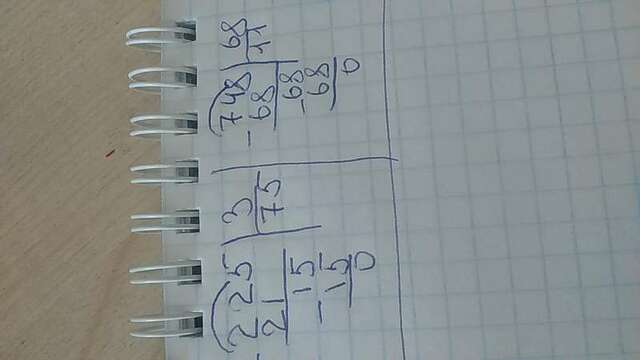 -225 | 3
21 | 75
15
-15
0
-748 | 68
68 | 11
68
-68
0